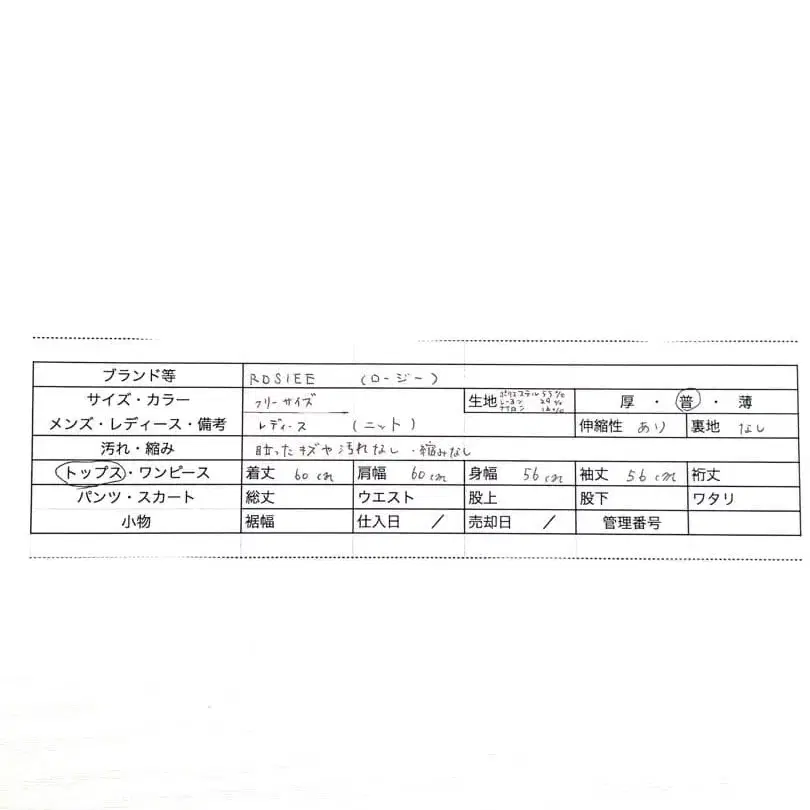 ブランド等 ROSIEE (ロージー)
サイズ・カラー フリーサイズ 生地 ポリエステル 55% 厚・普・薄
レーヨン 29%
ナイロン 16%
メンズ・レディース・備考 レディース (ニット) 伸縮性 あり 裏地 なし
汚れ・縮み 目立ったキズや汚れなし・縮みなし
トップス・ワンピース 着丈 60cm 肩幅 60cm 身幅 56cm 袖丈 56cm 裄丈
パンツ・スカート 総丈 ウエスト 股上 股下 ワタリ
小物 裾幅 仕入日 / 売却日 / 管理番号